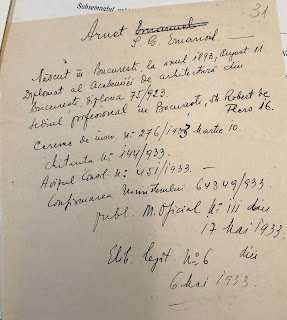 Subsemnatul
31
Arnet Emanuel
S. C. Emanoil.
Născut în București, la anul 1893, August 11
Diplomat al Academiei de arhitectură din
București, diploma 75/923.
Sediul profesional în București, str Robert de
Flers 16.
Cererea de înscr. No 276/1933 Martie 10.
chitanta No 144/933.
Avizul Cons. No 451/1933. —
Confirmarea Ministerului 64349/933.
publ. M. Oficial No 111 din
17 Mai 1933.
Elib. legit. No 6 din
6 Mai 1933.